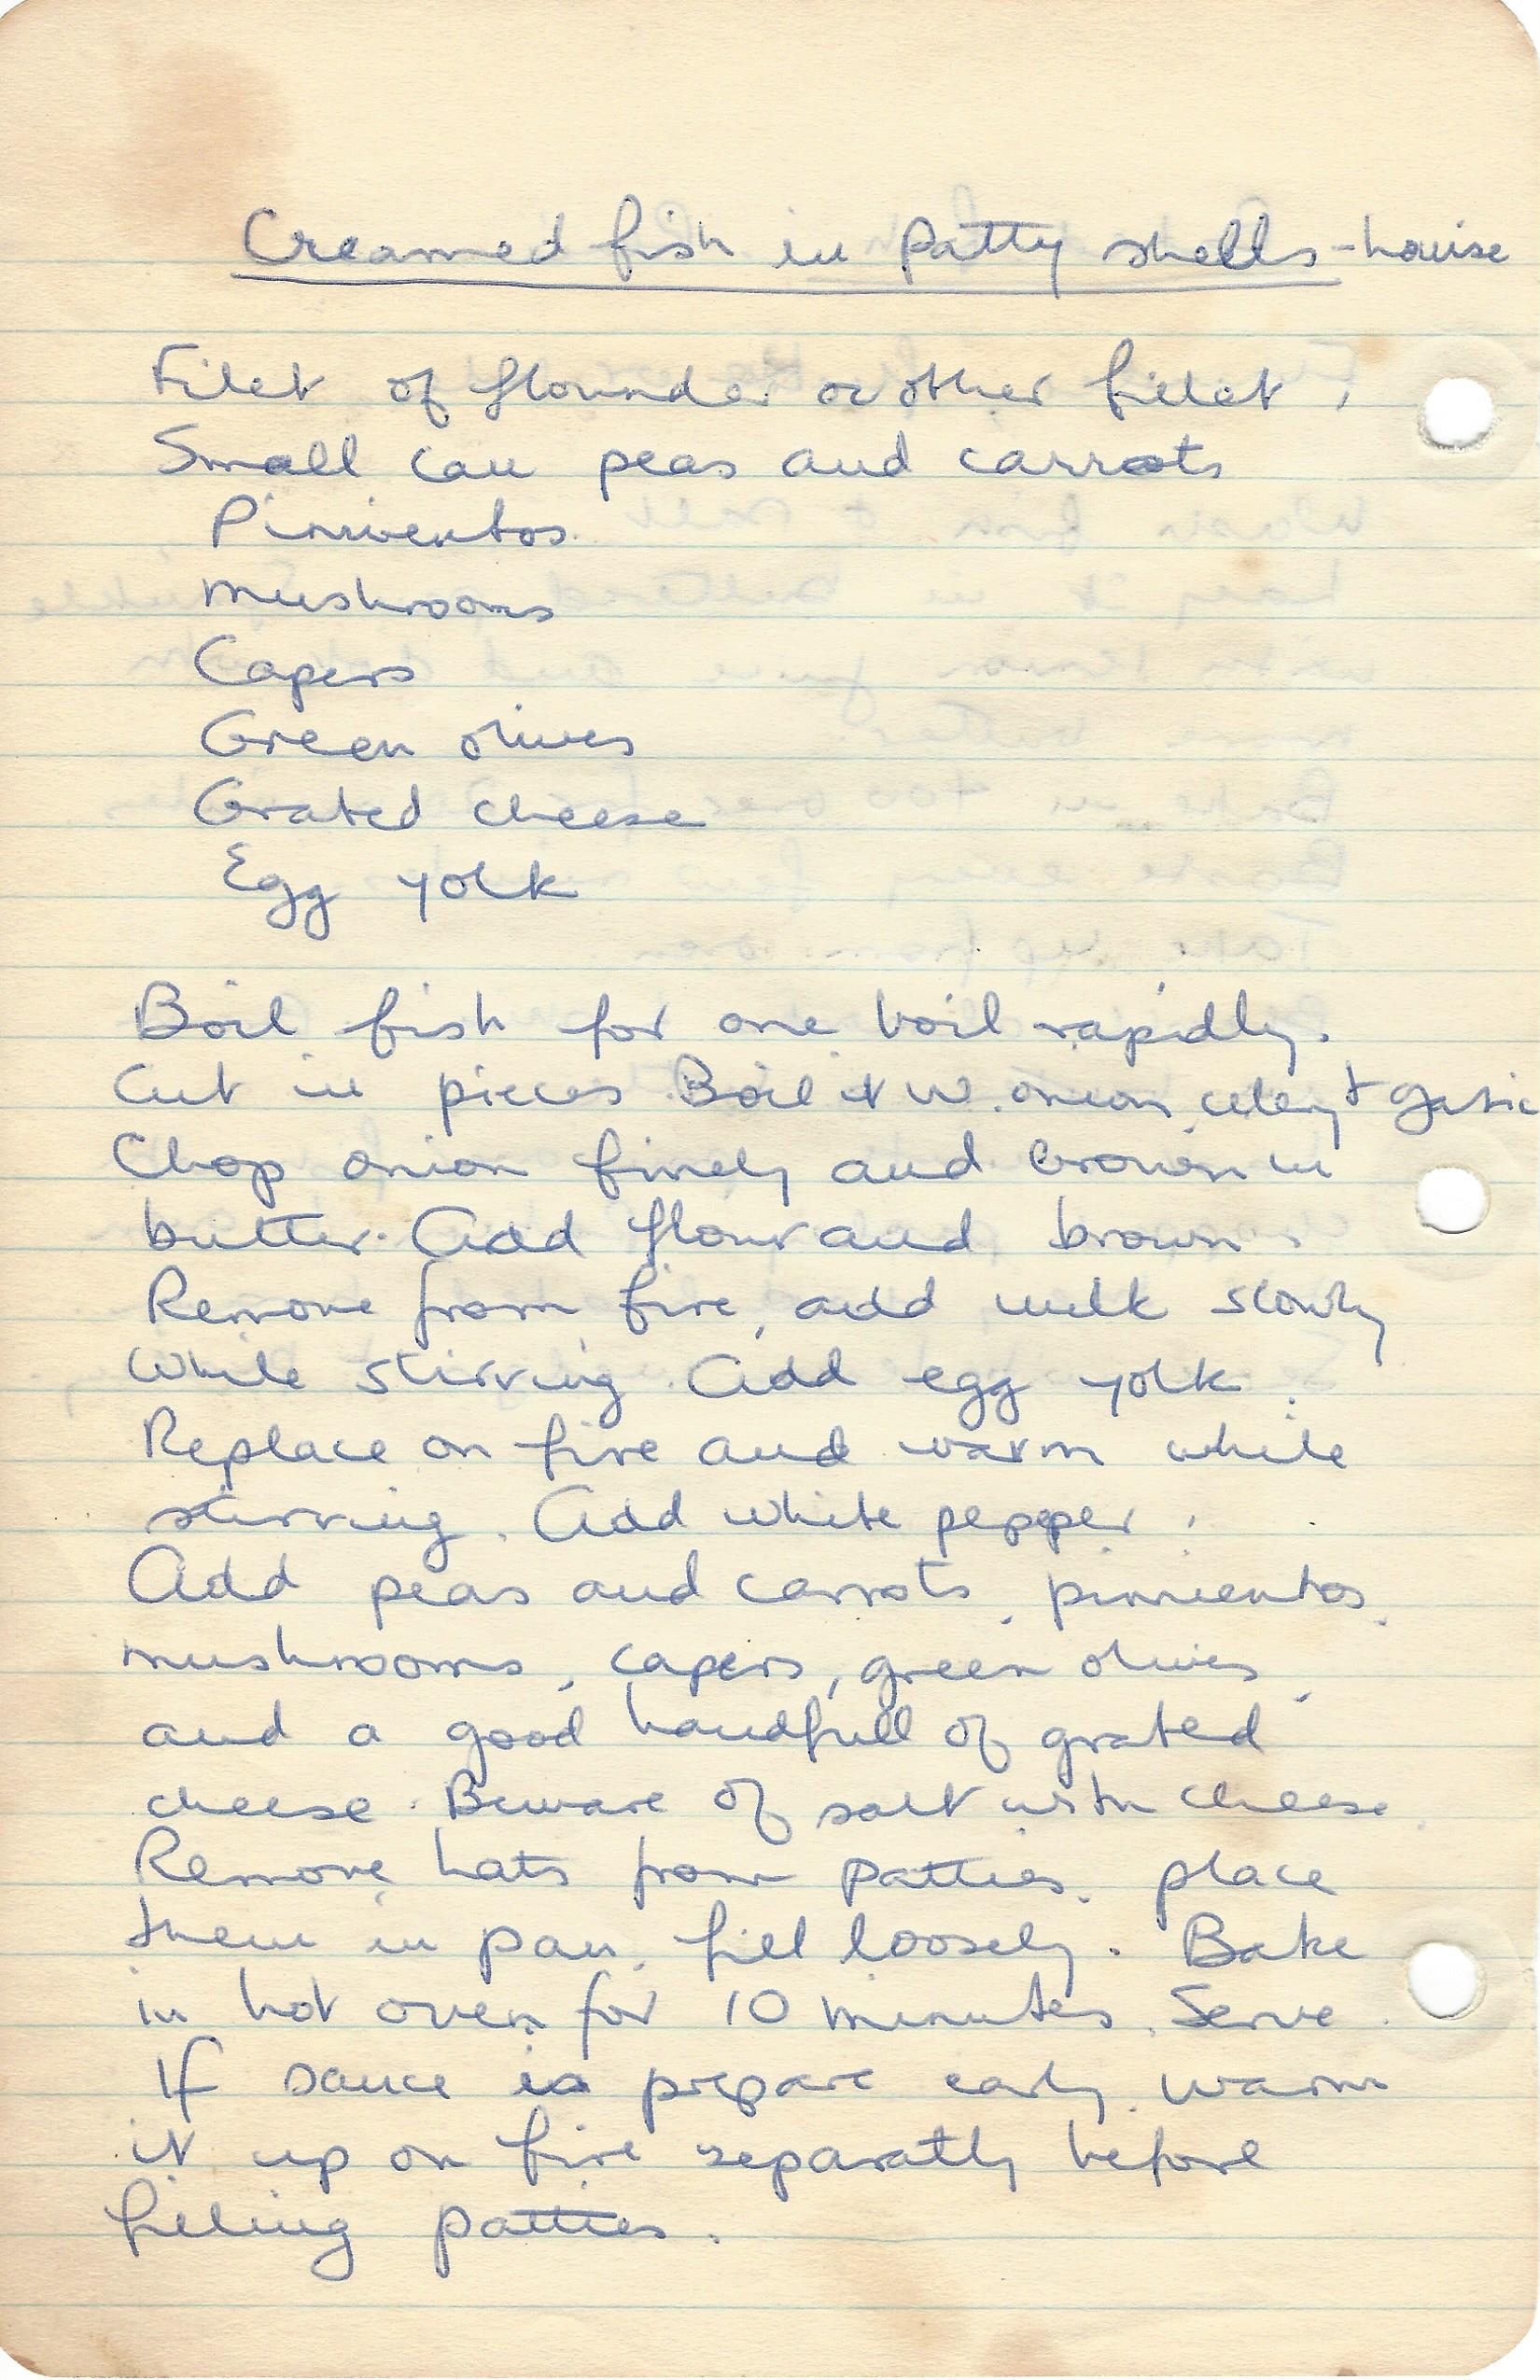 Creamed fish in Patty shells - Louise
Filet of flounder or other fillet,
Small can peas and carrots
Pimientos
Mushrooms
Capers
Green olives
Grated cheese
Egg yolk
Boil fish for one boil rapidly.
Cut in pieces Boil it w. onion, celery + garlic
Chop onion finely and brown in
butter. Add flour and brown.
Remove from fire, add milk slowly
while stirring. Add egg yolk.
Replace on fire and warm while
stirring. Add white pepper.
Add peas and carrots, pimientos,
mushrooms, capers, green olives,
and a good handfull of grated
cheese. Beware of salt with cheese.
Remove hats from patties, place
them in pan, fill loosely. Bake
in hot oven for 10 minutes. Serve.
If sauce is prepare early, warm
it up on fire separatly before
filing patties.